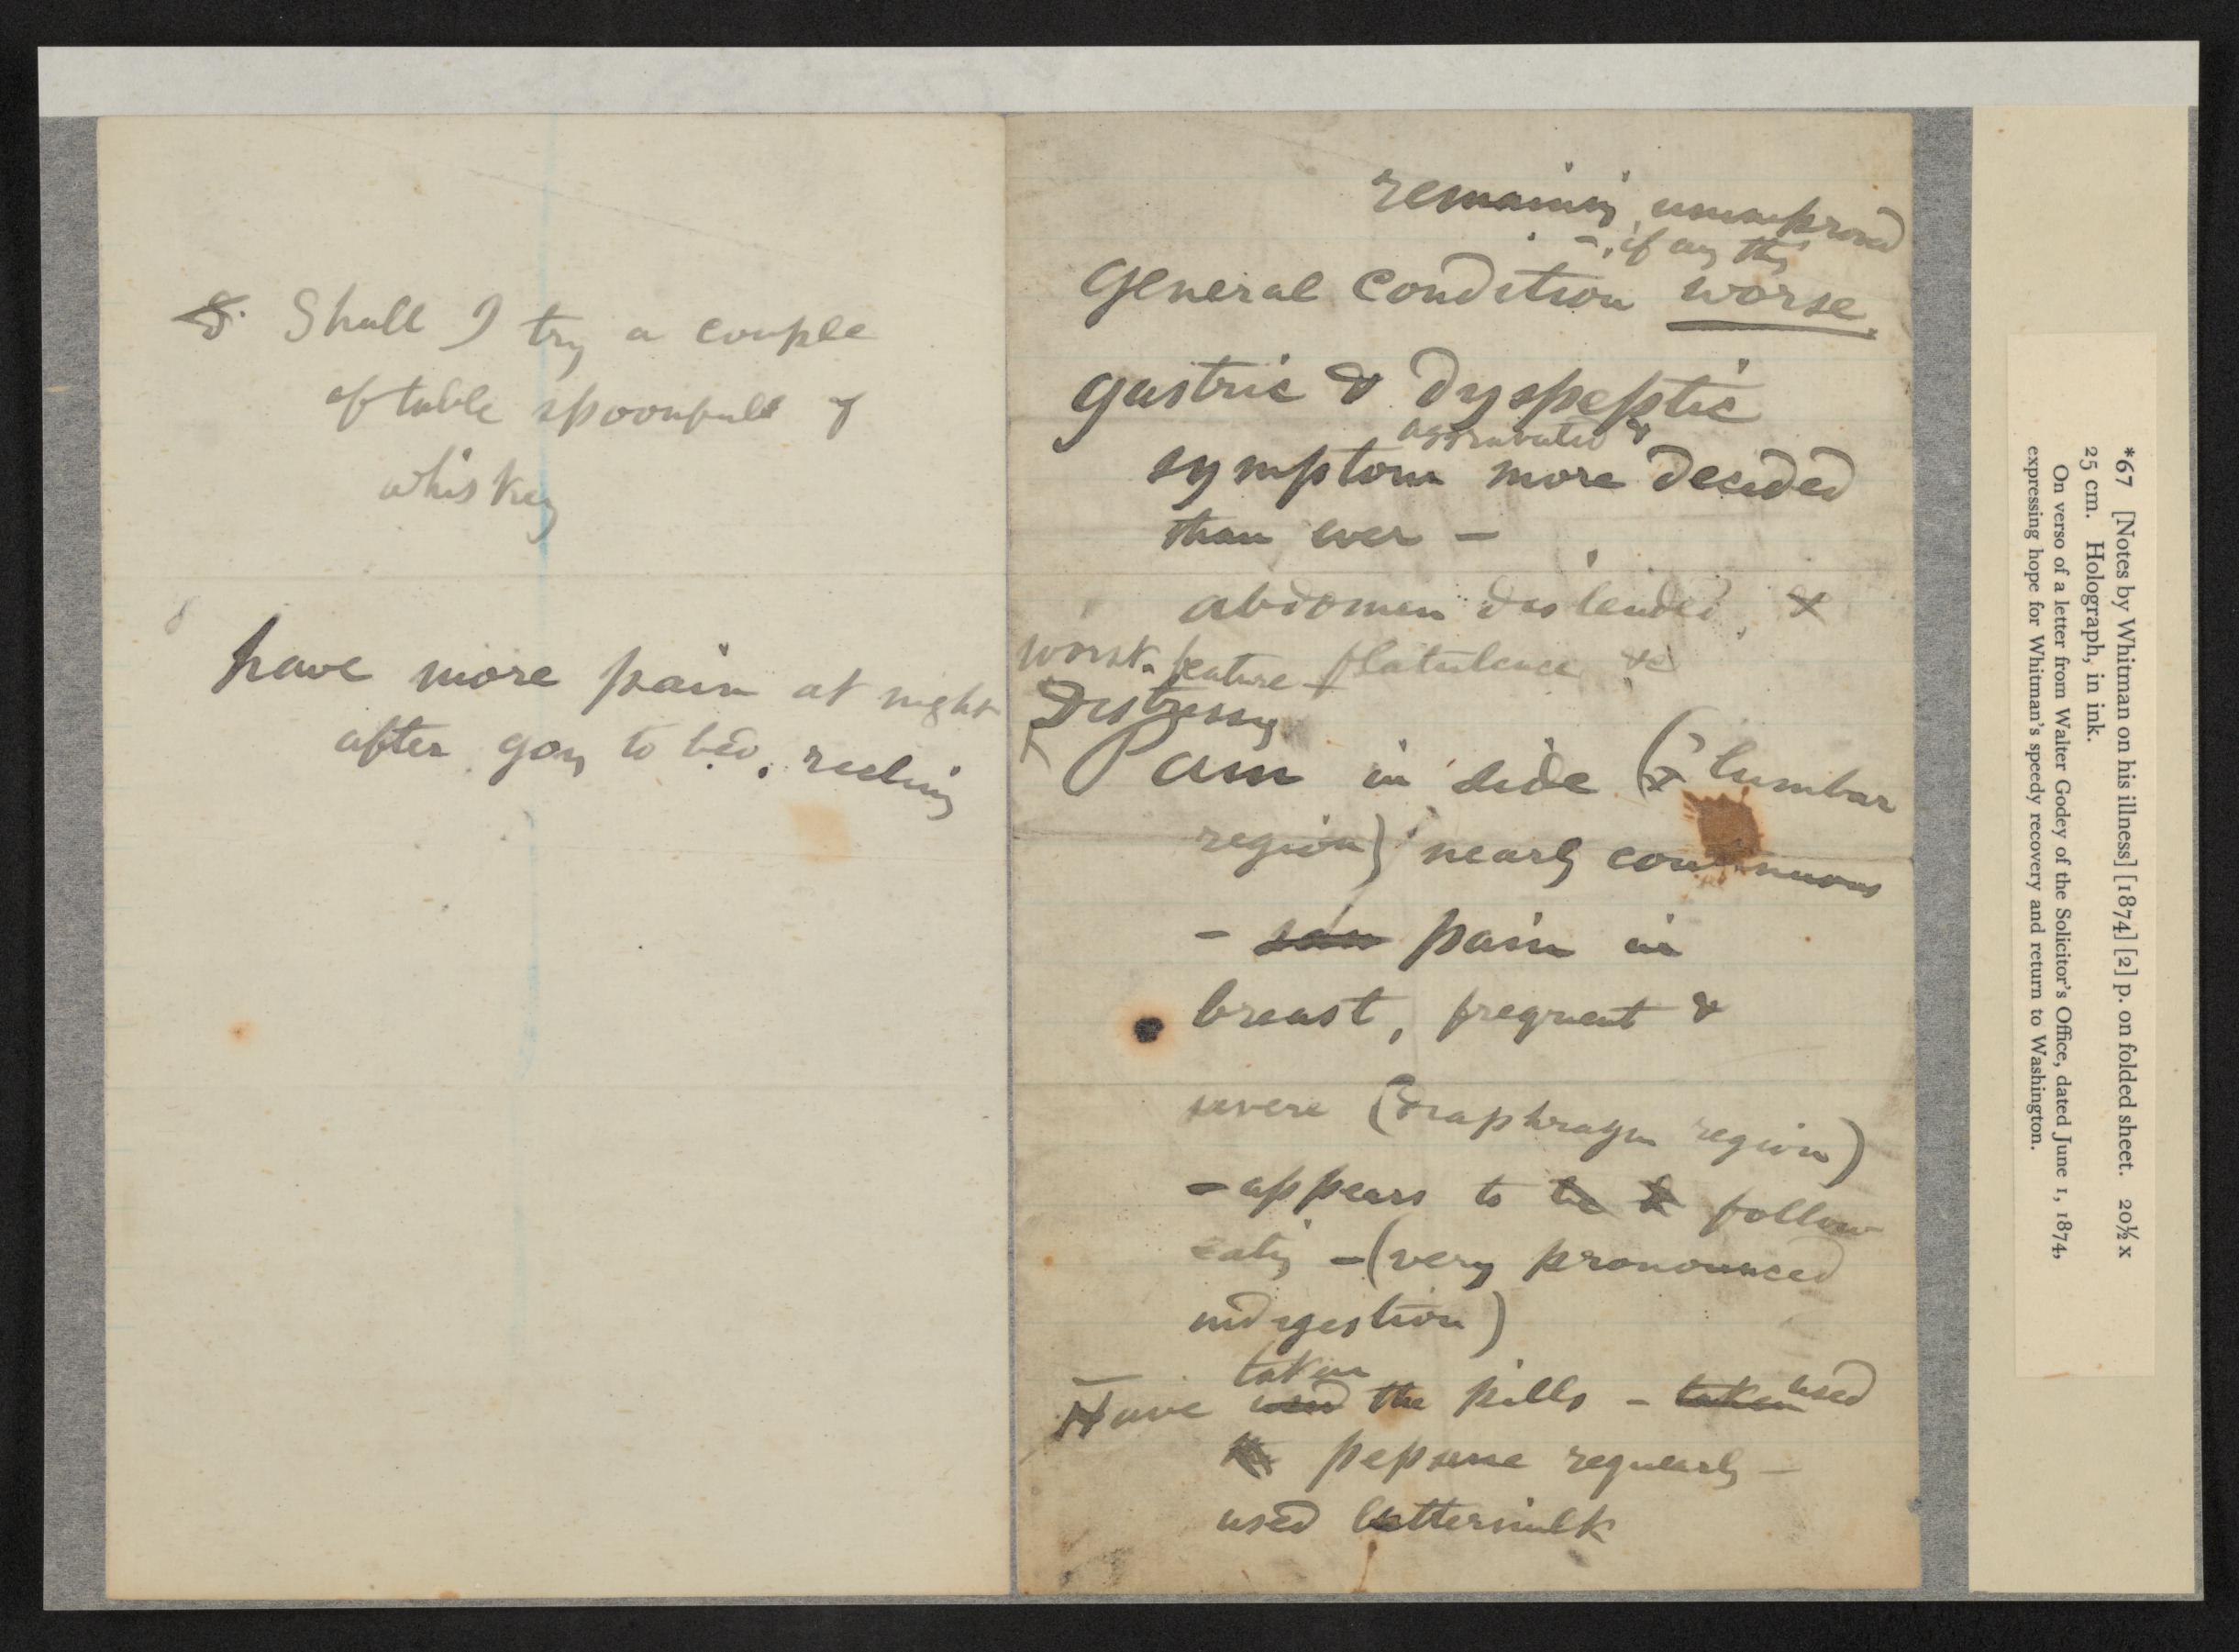 S. Shall I try a couple
of table spoonfuls of
whiskey
have more pain at night
after going to bed,
remaining unimproved
– , if any thing
General Condition worse.
gastric & dyspeptic
aggravated &
symptoms more decided
than ever –
abdomen distended, &
worst feature flatulence &c
Distressing
Pain in side (& lumbar
region) nearly continuous
– pain in
breast, frequent &
severe (diaphragm region)
– appears to be follow
eating – (very pronounced
indigestion)
taken
Have used the pills – taken used
pepsine regularly –
used buttermilk
*67 [Notes by Whitman on his illness] [1874] [2] p. on folded sheet. 20½ x
25 cm. Holograph, in ink.
On verso of a letter from Walter Godey of the Solicitor's Office, dated June 1, 1874,
expressing hope for Whitman's speedy recovery and return to Washington.